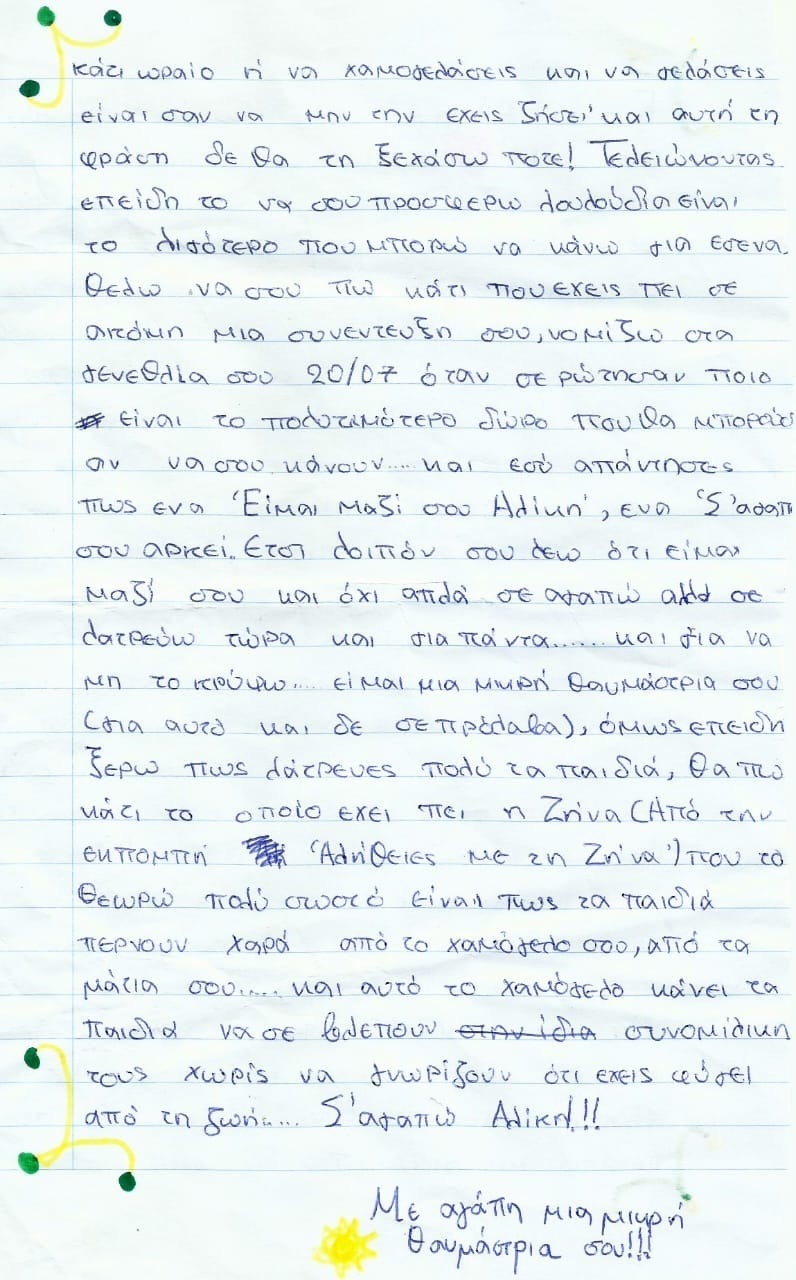 κάτι ωραίο ή να χαμογελάσεις και να γελάσεις
είναι σαν να μην την εχεις ζήσει' και αυτή τη
φράση δε θα τη ξεχάσω ποτε! Τελειώνοντας
επειδη το να σου προσφερω λουλούδια είναι
το λιγότερο που μπορώ να κάνω για εσενα.
Θελω να σου πω κάτι που εχεις πει σε
ακόμη μια συνεντευξη σου, νομιζω στα
γενεθλία σου 20/07 όταν σε ρώτησαν ποιο
είναι το πολυτιμότερο δώρο που θα μπορούσ
αν να σου κάνουν.... και εσύ απάντησες
πως ενα 'Είμαι μαζί σου Αλίκη', ενα 'Σ'αγαπ
σου αρκεί.. Ετσι λοιπόν σου λεω ότι είμαι
μαζί σου και όχι απλά σε αγαπώ αλλά σε
λατρεύω τώρα και για πάντα...... και για να
μη το κρύψω.... είμαι μια μικρή θαυμάστρια σου
(για αυτό και δε σε πρόλαβα), όμως επειδη
ξερω πως λάτρευες πολύ τα παιδιά, θα πω
κάτι το οποίο εχει πει η Ζήνα (Από την
εκπομπή 'Αλήθειες με τη Ζήνα') που το
θεωρώ πολύ σωστό είναι πως τα παιδιά
περνουν χαρά από το χαμόγελο σου, από τα
μάτια σου..... και αυτό το χαμόγελο κάνει τα
παιδιά να σε βλεπουν στην ίδια συνομιλικη
τους χωρίς να γνωρίζουν ότι εχεις φύγει
από τη ζωή.... Σ'αγαπώ Αλίκη!!!
Με αγάπη μια μικρή
θαυμάστρια σου!!!